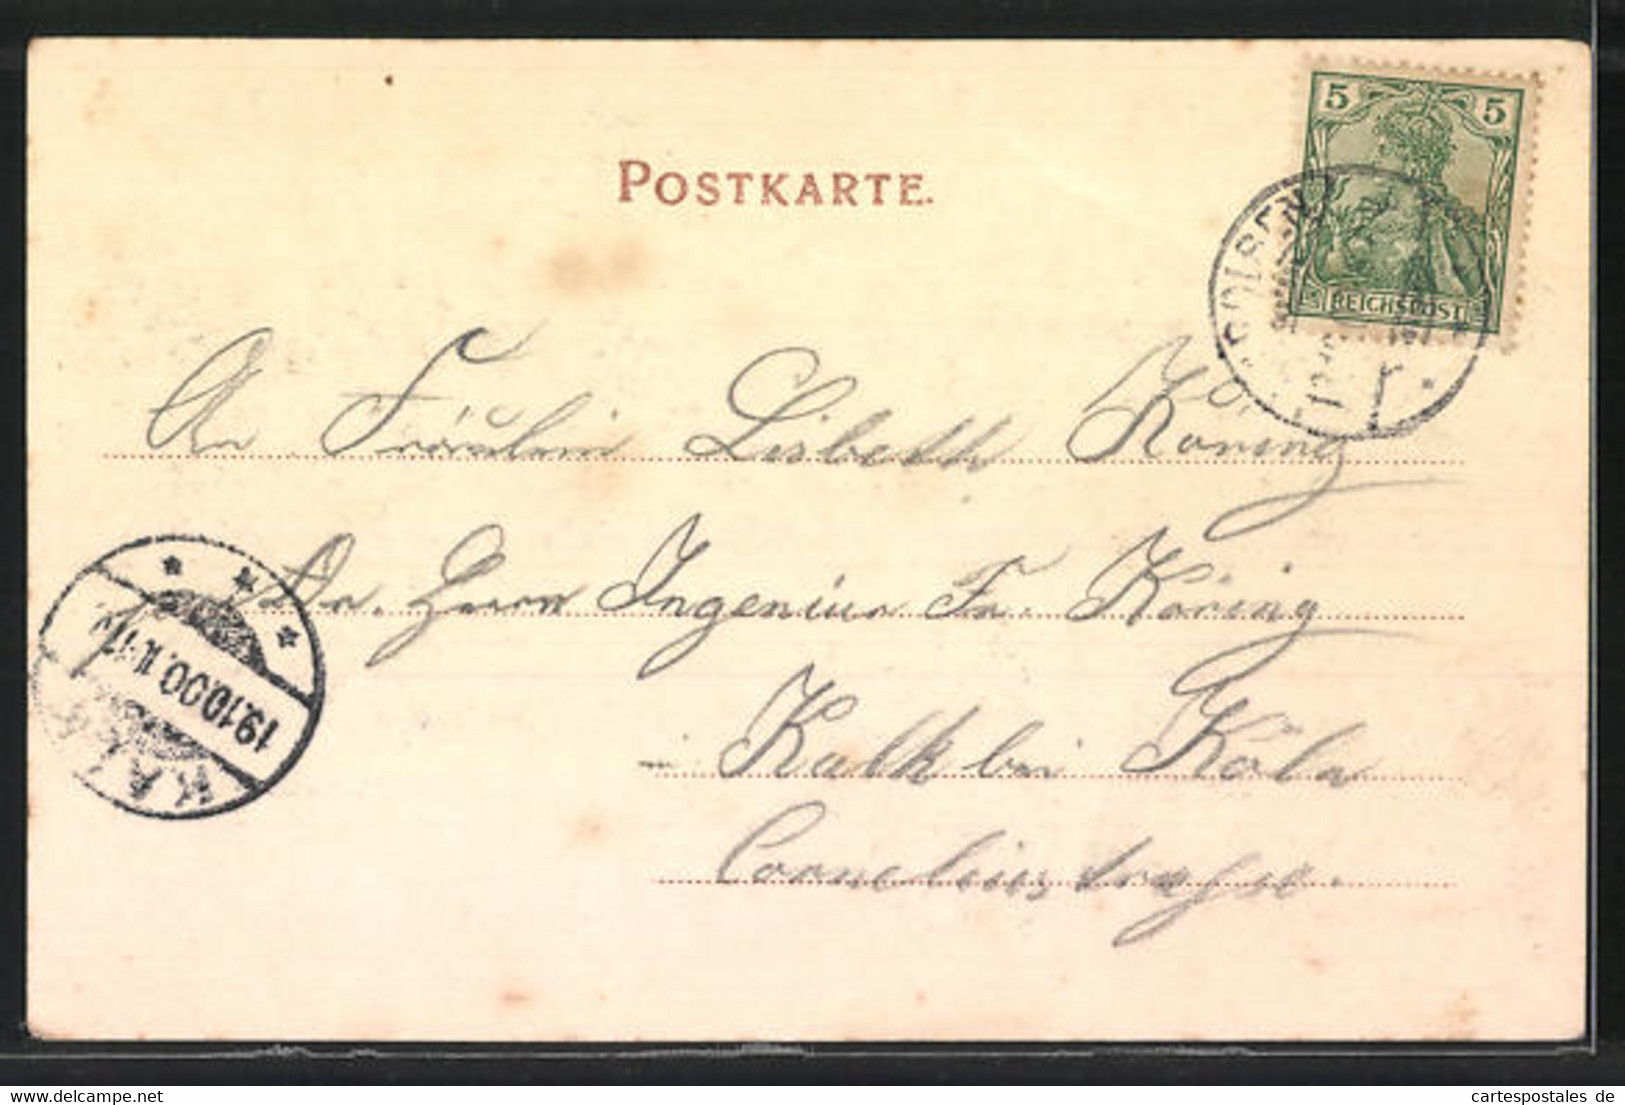 POSTKARTE.
5 5
REICHSPOST
AROLSEN
An Fräulein Lisbeth Köning
Adr. Herrn Ingenieur Fr. Köning
Kalk bei Köln
Corneliusstrasse.
19.10.00. 11-12
KALK
www.delcampe.net
cartespostales de